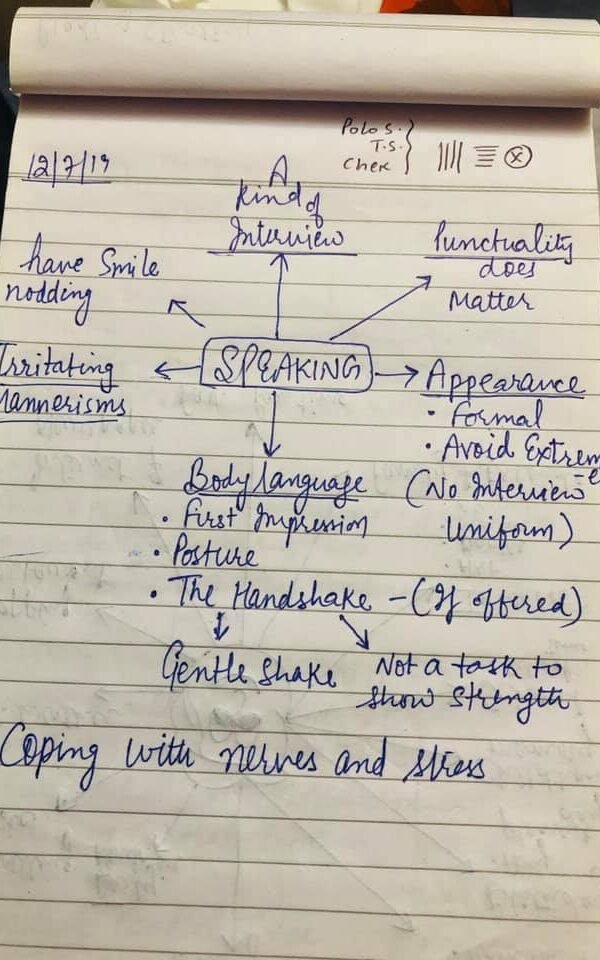 Polo S.
T.S.
Chex
12/7/19
A
Kind of
Interview
Punctuality
does
Matter
have Smile
nodding
SPEAKING
Irritating
Mannerisms
Appearance
• Formal
• Avoid Extreme
(No Interview
Uniform)
Body language
• First Impression
• Posture
• The Handshake - (If offered)
Gentle Shake
Not a task to
show strength
Coping with nerves and stress